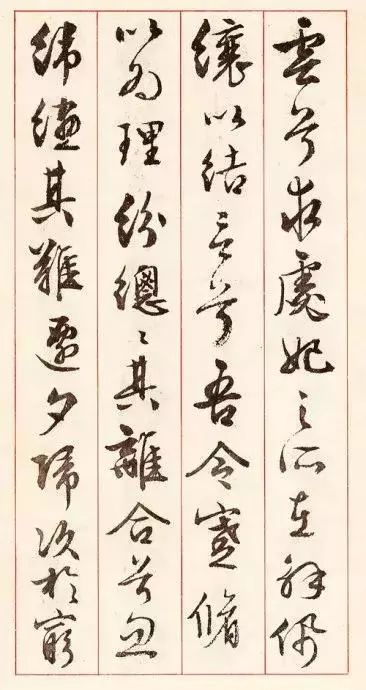 雲兮求虙妃之所在解佩
纕以結言兮吾令蹇脩
以為理紛總〻其離合兮忽
緯繣其難遷夕歸次於窮